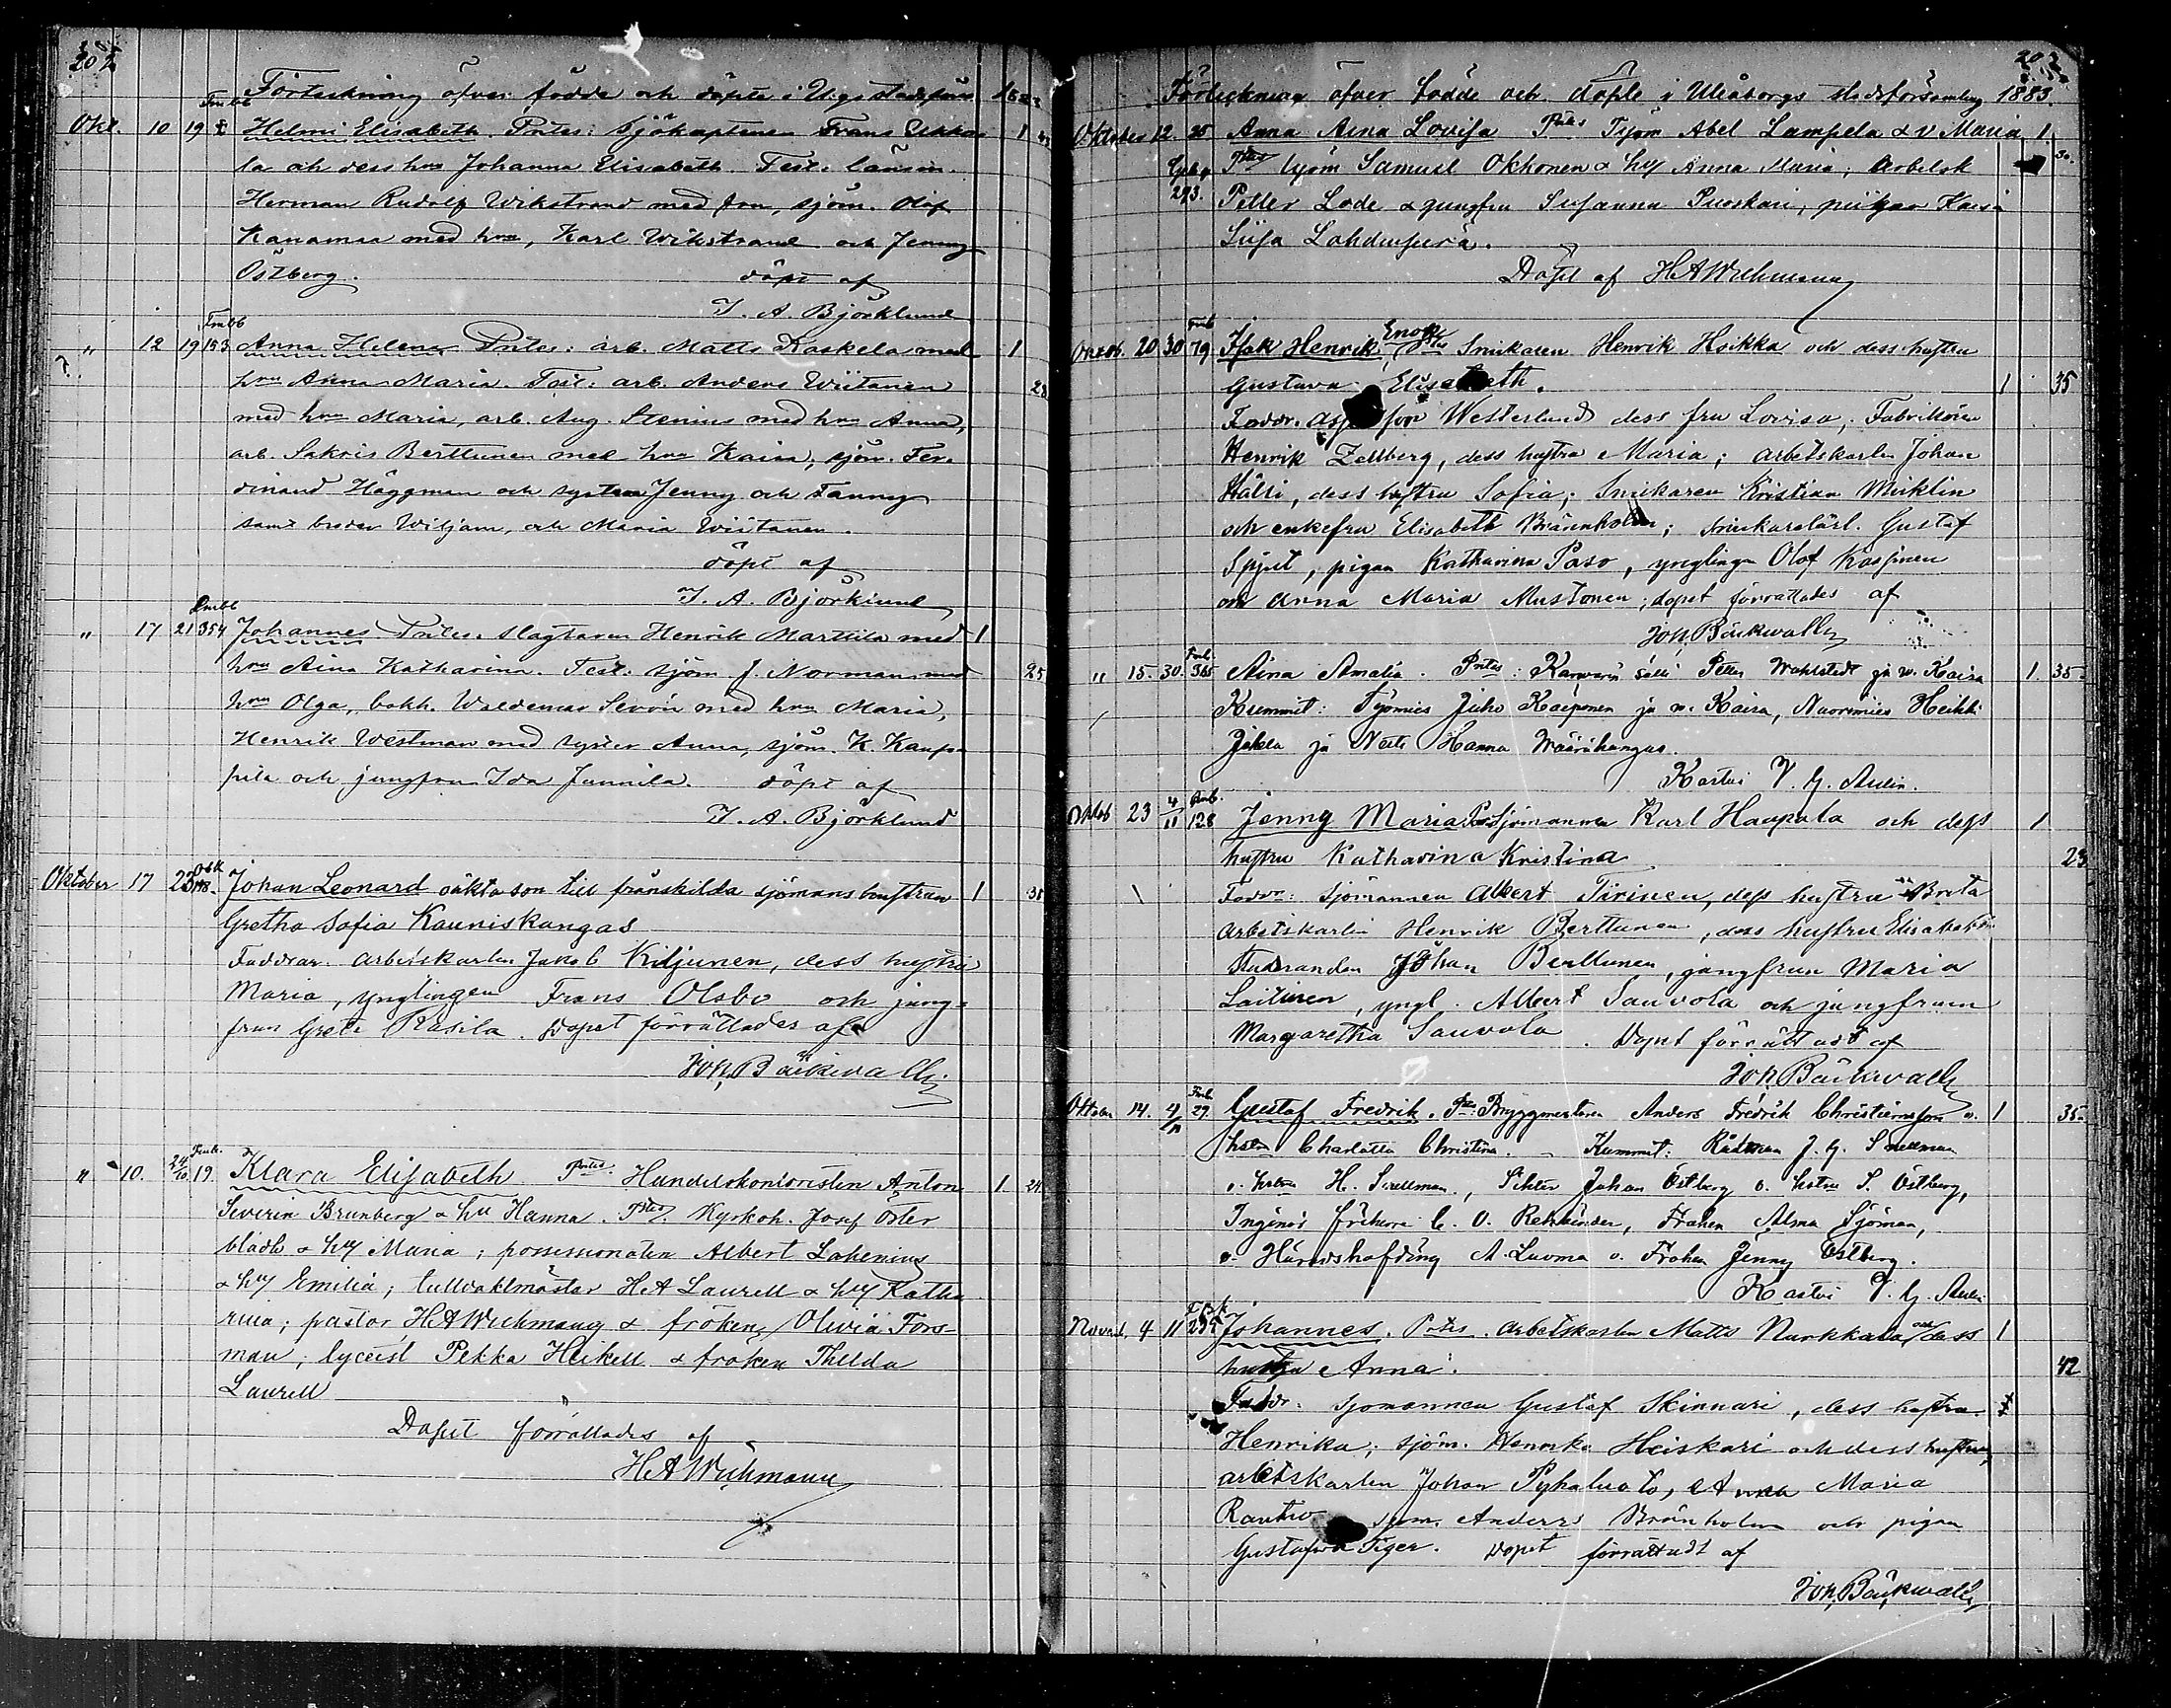 202
Förteckning öfver födde och döpte i Ulgs stadsförs 1883
Okt. 10 19 Helmi Elisabeth. Prtes: Sjökaptenen Frans Ukko- 1
la och dess hru Johanna Elisabeth. Test: länsm.
Herman Rudolf Wikstrand med fru, sjöm. Olof
Kanamaa med hru, Karl Wikstrand och Jenny
Östberg. döpt af
J. A. Björklund
Frnbb
" 12 19 153 Anna Helena Prtes: arb. Matts Kaskela med 1
hru Anna Maria. Test: arb. Anders Wiitanen 28
med hru Maria, arb. Aug. Stenius med hru Anna,
arb. Sakris Berttunen med hru Kaisa, sjöm. Fer-
dinand Häggman och systrarna Jenny och Fanny
samt broder Wiljam, och Maria Wiitanen.
döpt af
J. A. Björklund
" 17 21 354 Johannes Prtes. slagtaren Henrik Marttila med 1
hru Aina Katharina. Test: sjöm J. Norman med 25
hru Olga, bokh. Waldemar Sevón med hru Maria,
Henrik Westman med syster Anna, sjöm. K. Kaup-
pila och jungfrun Ida Junnila. döpt af
J. A. Björklund
Oktober 17 23 Johan Leonard oäkta son till frånskilda sjömanshustrun 1
Gretha Sofia Kauniskangas
Faddrar. arbetskarlen Jakob Kiljunen, dess hustru
Maria, ynglingen Frans Olsbo och jung-
frun Greta Rasila. Dopet förrättades af
Joh. Bäckwall
" 10. 24/10 19. Klara Elisabeth Prtes. Handelskontoristen Anton 1
Severin Brunberg & hu Hanna. Ptes. Kyrkoh. Josef Öster
bladh & hu Maria; possessionaten Albert Lakenius
& hu Emilia; tullvaktmästar H A Laurell & hu Katha
rina; pastor H A Wichmann & fröken Olivia Fors-
man; lyceist Pekka Heikell & fröken Thilda
Laurell
Dopet förrättades af
H A Wichmann
203
Förteckning öfver födde och döpte i Uleåborgs stadsförsamling 1883.
Oktober 12. 25 Anna Aina Lovisa Ptes Työm Abel Lampela & v Maria 1.
293. työm Samuel Okkonen & hu Anna Maria; Arbetsk 30.
Petter Lode & jungfru Susanna Puoskari; pigan Kaisa
Siisa Lahdenperä.
Döpt af H A Wichmann
Oktob. 20 30 79 Isak Henrik Enok Ptes Snickaren Henrik Hoikka och dess hustru
Gustava Elisabeth. 1 35
Faddr. Westerlund dess fru Lovisa; Fabrikören
Henrik Zellberg, dess hustru Maria; arbetskarlen Johan
Hälli, dess hustru Sofia; Snickaren Kristian Micklin
och enkefru Elisabeth Brännholm; snickarelärl. Gustaf
Spjut, pigan Katharina Paso, ynglingen Olof Kasjinen
och Anna Maria Mustonen; dopet förrättades af
Joh. Bäckwall
" 15. 30. 365 Aina Amalia. Ptes: Karwari sälli Petter Wahlstedt ja w. Kaisa 1 35
Kummit: Työmies Juho Kaiponen ja w. Kaisa, Nuorimies Heikki
Jakla ja Neito Hanna Määrikangas.
Kastoi V. G. Aulin.
Oktob 23 4/11 128 Jenny Maria Ptes Sjömannen Karl Haapala och dess 1
hustru Katharina Kristina 23
Faddr: Sjömannen Albert Tirinen, dess hustru Brita
arbetskarlen Henrik Berttunen, dess hustru Elisabeth
Studeranden Johan Berttunen, jungfrun Maria
Laitinen, yngl. Albert Sauvola och jungfrun
Margaretha Sauvola. Dopet förrättadt af
Joh. Bäckwall
Oktober 14. 4/11 29. Gustaf Fredrik. Ptes: Bryggmästaren Anders Fredrik Christiernsson o. 1 35
hstn Charlotta Christina. Kummit: Rådman J. G. Snellman
o. hstru H. Snellman, Siktör Johan Östberg o. hstru S. Östberg,
Ingeniör friherre C. O. Rehbinder, Fröken Alma Sjöman,
o. Häradshöfding A. Luoma o. Fröken Jenny Östberg.
Kastoi V. G. Aulin
Novemb. 4 11 235 Johannes. Ptes. Arbetskarlen Matts Nurkkala och dess 1
hustru Anna. 42
Faddr. sjömannen Gustaf Skinnari, dess hustru
Henrika; sjöm. Henrik Heiskari och dess hustru,
arbetskarlen Johan Pyhäluoto, Anna Maria
Rautio sjöm. Anders Brännholm och pigan
Gustafva Tiger. Dopet förrättadt af
Joh. Bäckwall